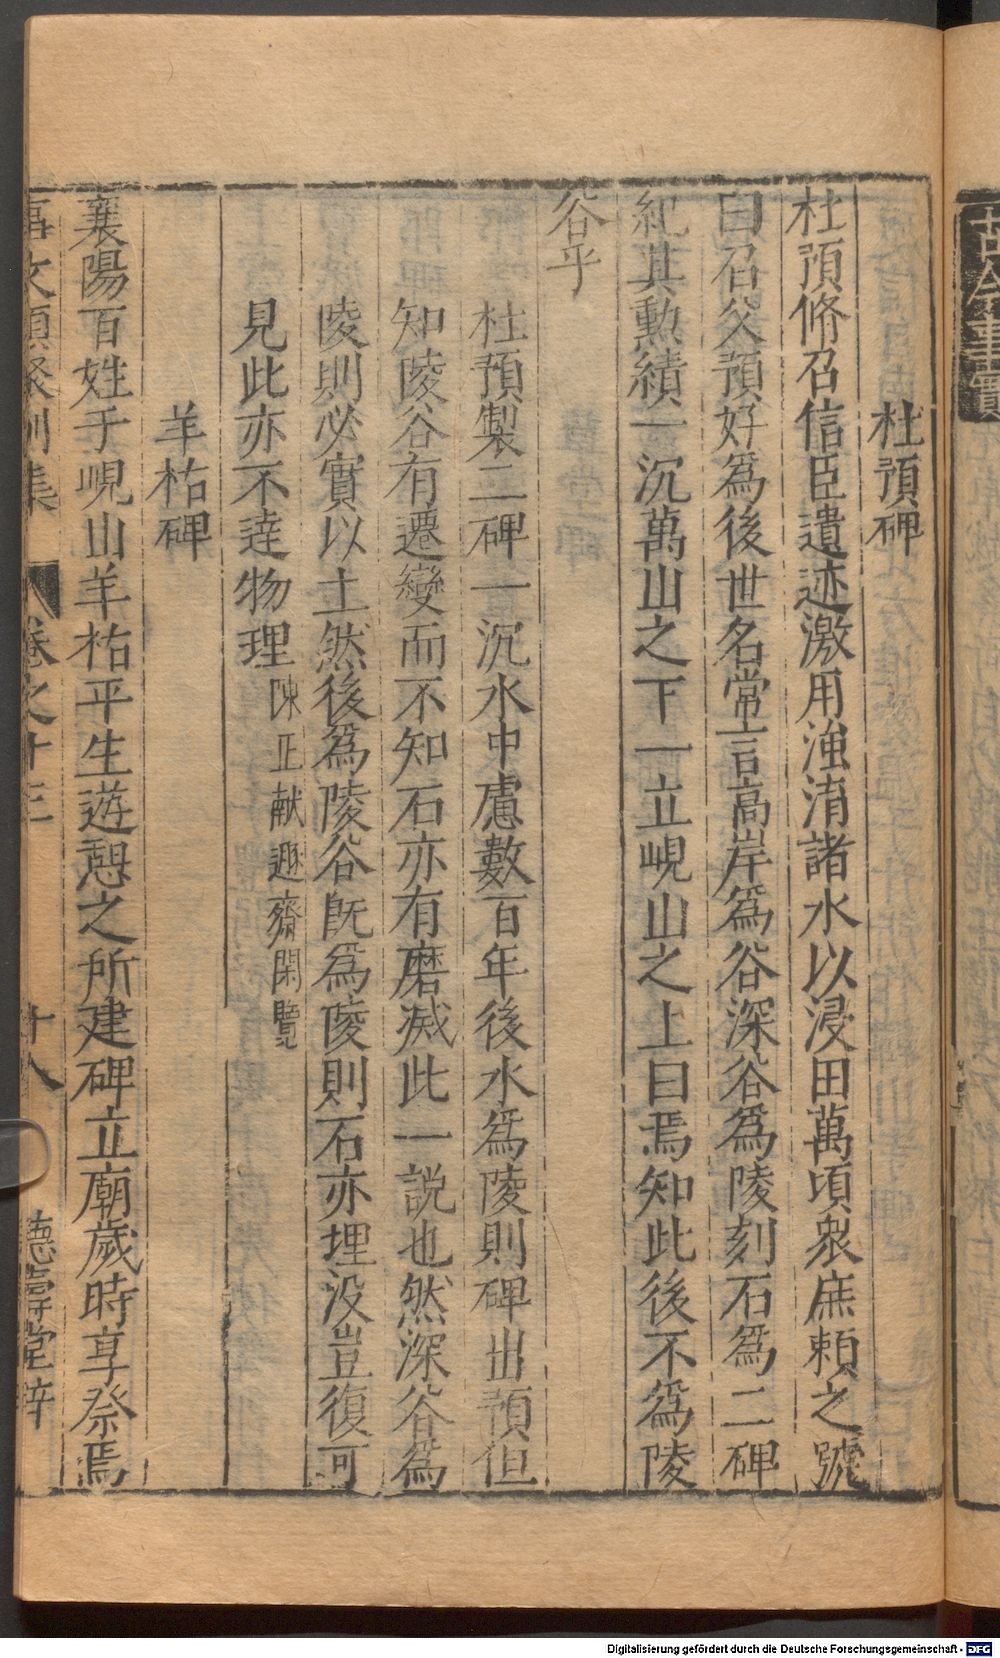 古今事實
杜預碑
杜預脩召信臣遺迹激用滍淯諸水以浸田萬頃衆庶賴之號
曰召父預好爲後世名常言高岸爲谷深谷爲陵刻石爲二碑
紀其勲績一沉萬山之下一立峴山之上曰焉知此後不爲陵
谷乎
杜預製二碑一沉水中慮數百年後水爲陵則碑出預但
知陵谷有遷變而不知石亦有磨滅此一説也然深谷爲
陵則必實以土然後爲陵谷旣爲陵則石亦埋没豈復可
見此亦不逹物理陳正献遯齋閑覽
羊祜碑
襄陽百姓于峴山羊祜平生遊憩之所建碑立廟歲時享祭焉
事文類聚別集 卷之十三 十八 德壽堂梓
Digitalisierung gefördert durch die Deutsche Forschungsgemeinschaft - DFG